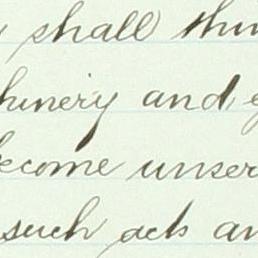 shall thin
hinery and e
ecome unser
such acts an